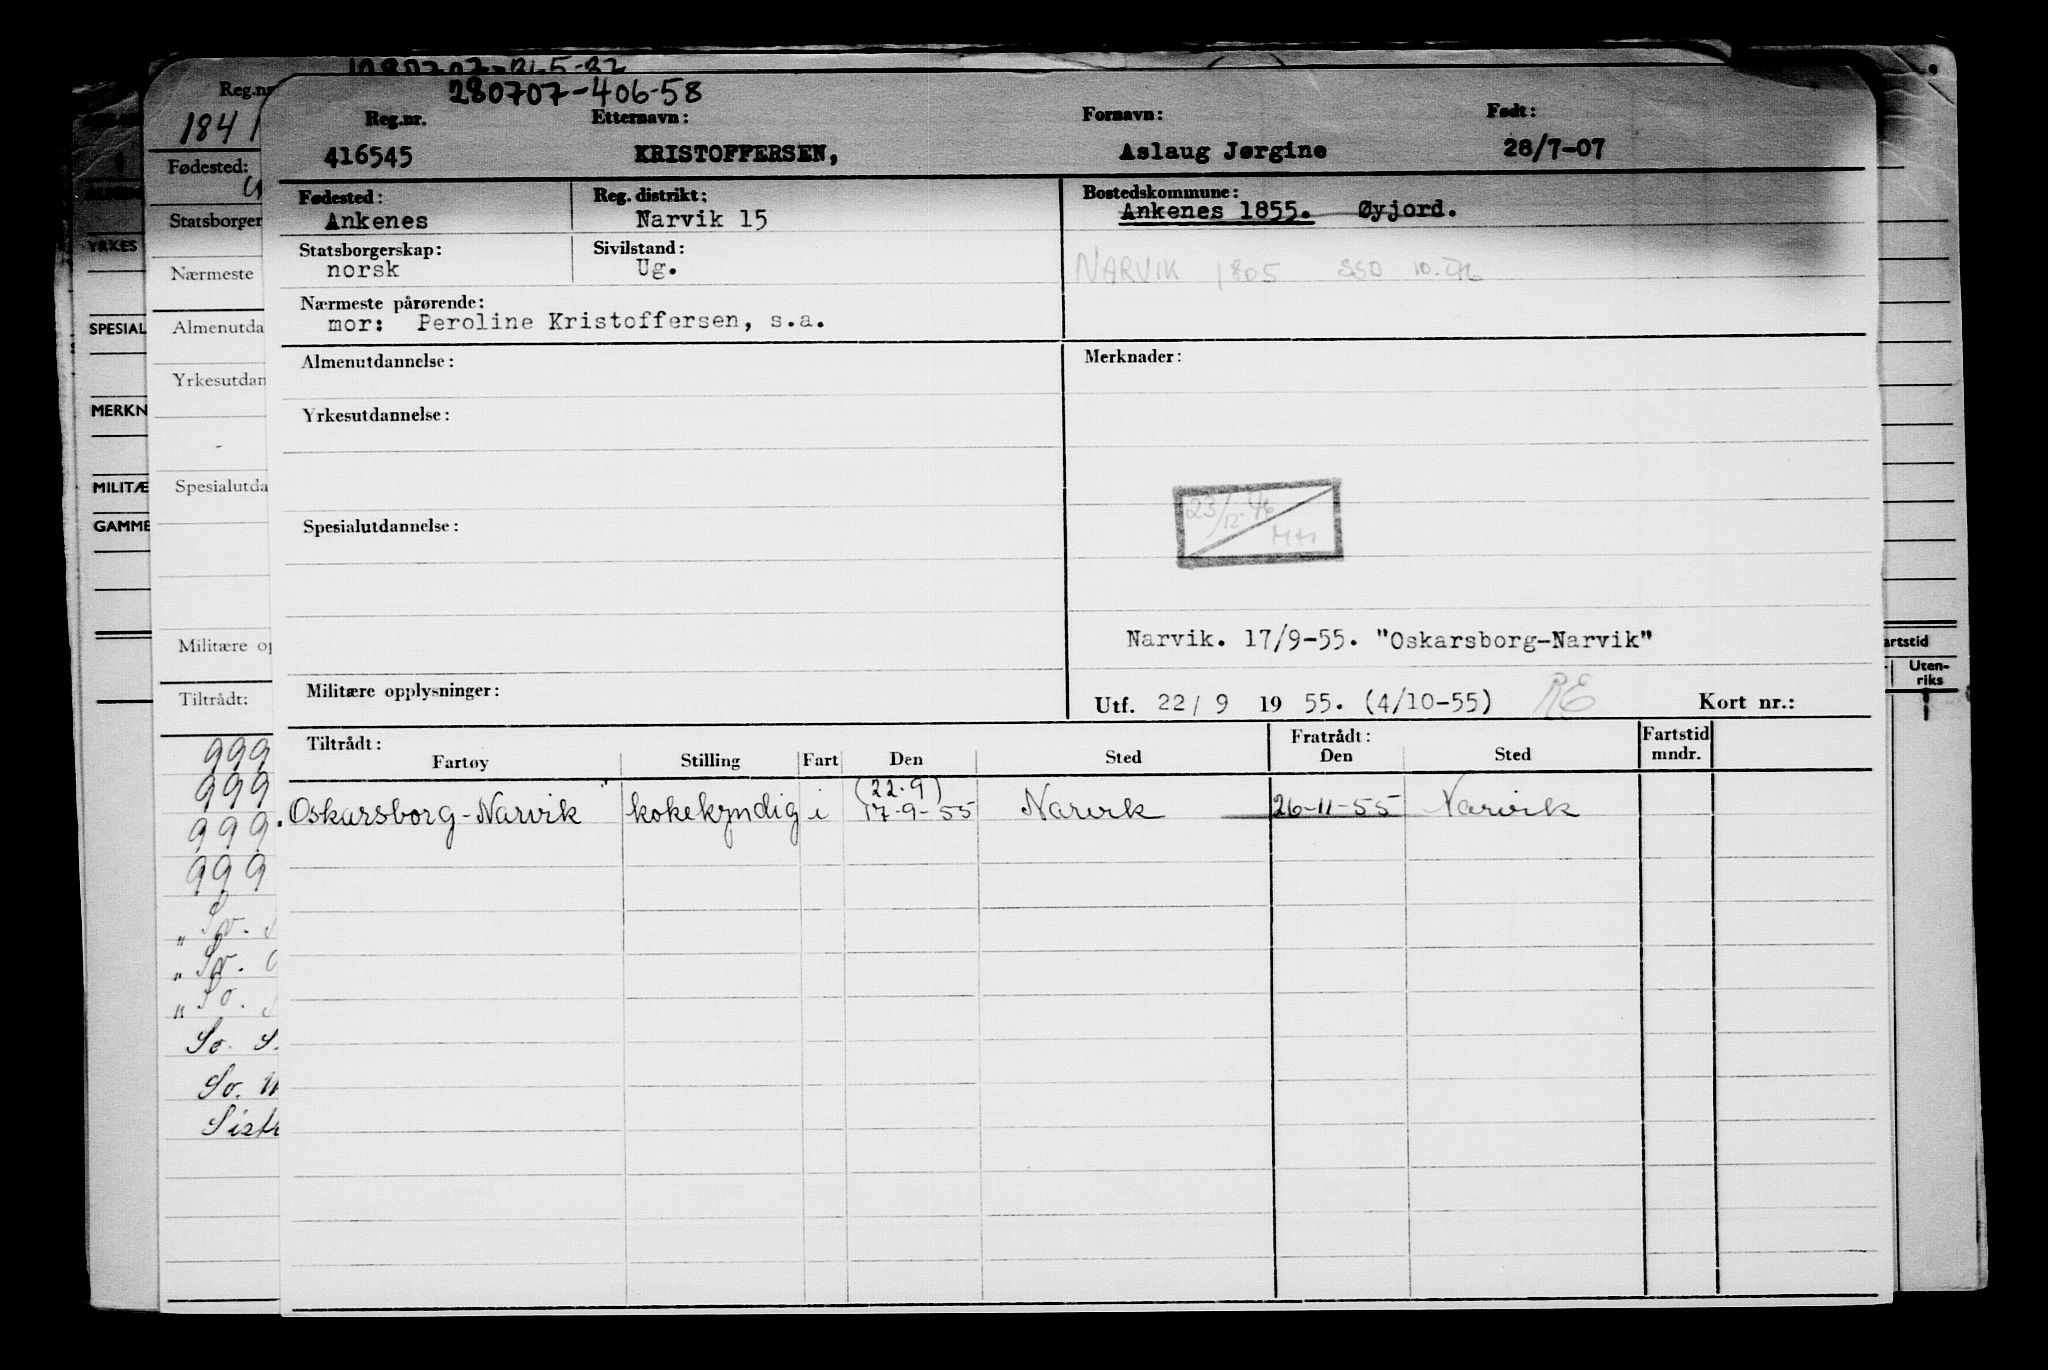 280707-406-58
Reg.nr. Etternavn: Fornavn: Født:
416545 KRISTOFFERSEN, Aslaug Jørgine 28/7-07
Fødested: Reg. distrikt: Bostedskommune:
Ankenes Narvik 15 Ankenes 1855. Øyjord.
Statsborgerskap: Sivilstand:
norsk Ug. NARVIK 1805 SSD 10.76
Nærmeste pårørende:
mor: Peroline Kristoffersen, s.a.
Almenutdannelse: Merknader:
Yrkesutdannelse:
23/12.76
Spesialutdannelse:
Narvik. 17/9-55. "Oskarsborg-Narvik"
Militære opplysninger: Utf. 22/ 9 19 55. (4/10-55) RE Kort nr.:
Tiltrådt: Fratrådt: Fartstid
Fartøy Stilling Fart Den Sted Den Sted mndr.
(22.9)
Oskarsborg-Narvik kokekyndig i 17-9-55 Narvik 26-11-55 Narvik
Reg.nr
1841
Fødested:
Statsborger
Nærmeste
Almenutda
Yrkesutdan
Spesialutda
Militære op
Tiltrådt:
999
999
999.
999
„ Sv.
„ Sv.
„ So.
So. S.
So.
Sist
YRKES
SPESIAL
MERKN
MILITÆ
GAMME
artstid
Uten-
riks